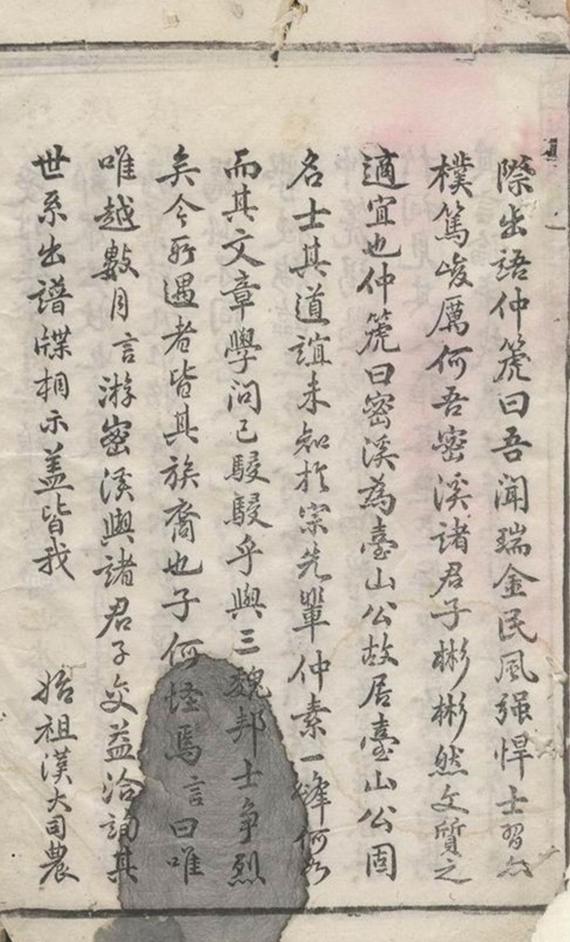 際出語仲箎曰吾聞瑞金民風强悍士習亦
樸篤峻厲何吾密溪諸君子彬彬然文質之
適宜也仲箎曰密溪為臺山公故居臺山公固
名士其道誼未知於宗先輩仲素一峰何如
而其文章學问已駸駸乎與三魏邦士争烈
矣今所遇者皆其族裔也子何怪焉言曰唯
唯越數月言游密溪與諸君子交益洽詢其
世系出譜牒相示盖皆我 始祖漢大司農